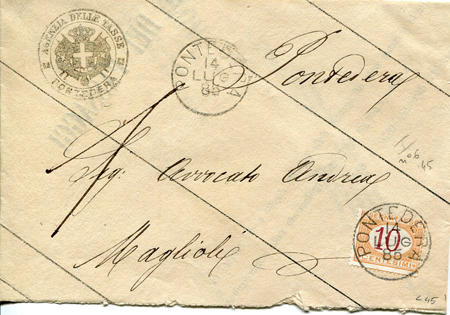 AGENZIA DELLE TASSE
PONTEDERA
PONTEDERA
14
LUG
85
Pontedera
Sig: Avvocato Andrea
Maglioli
PONTEDERA
14
LUG
85
10
CENTESIMI